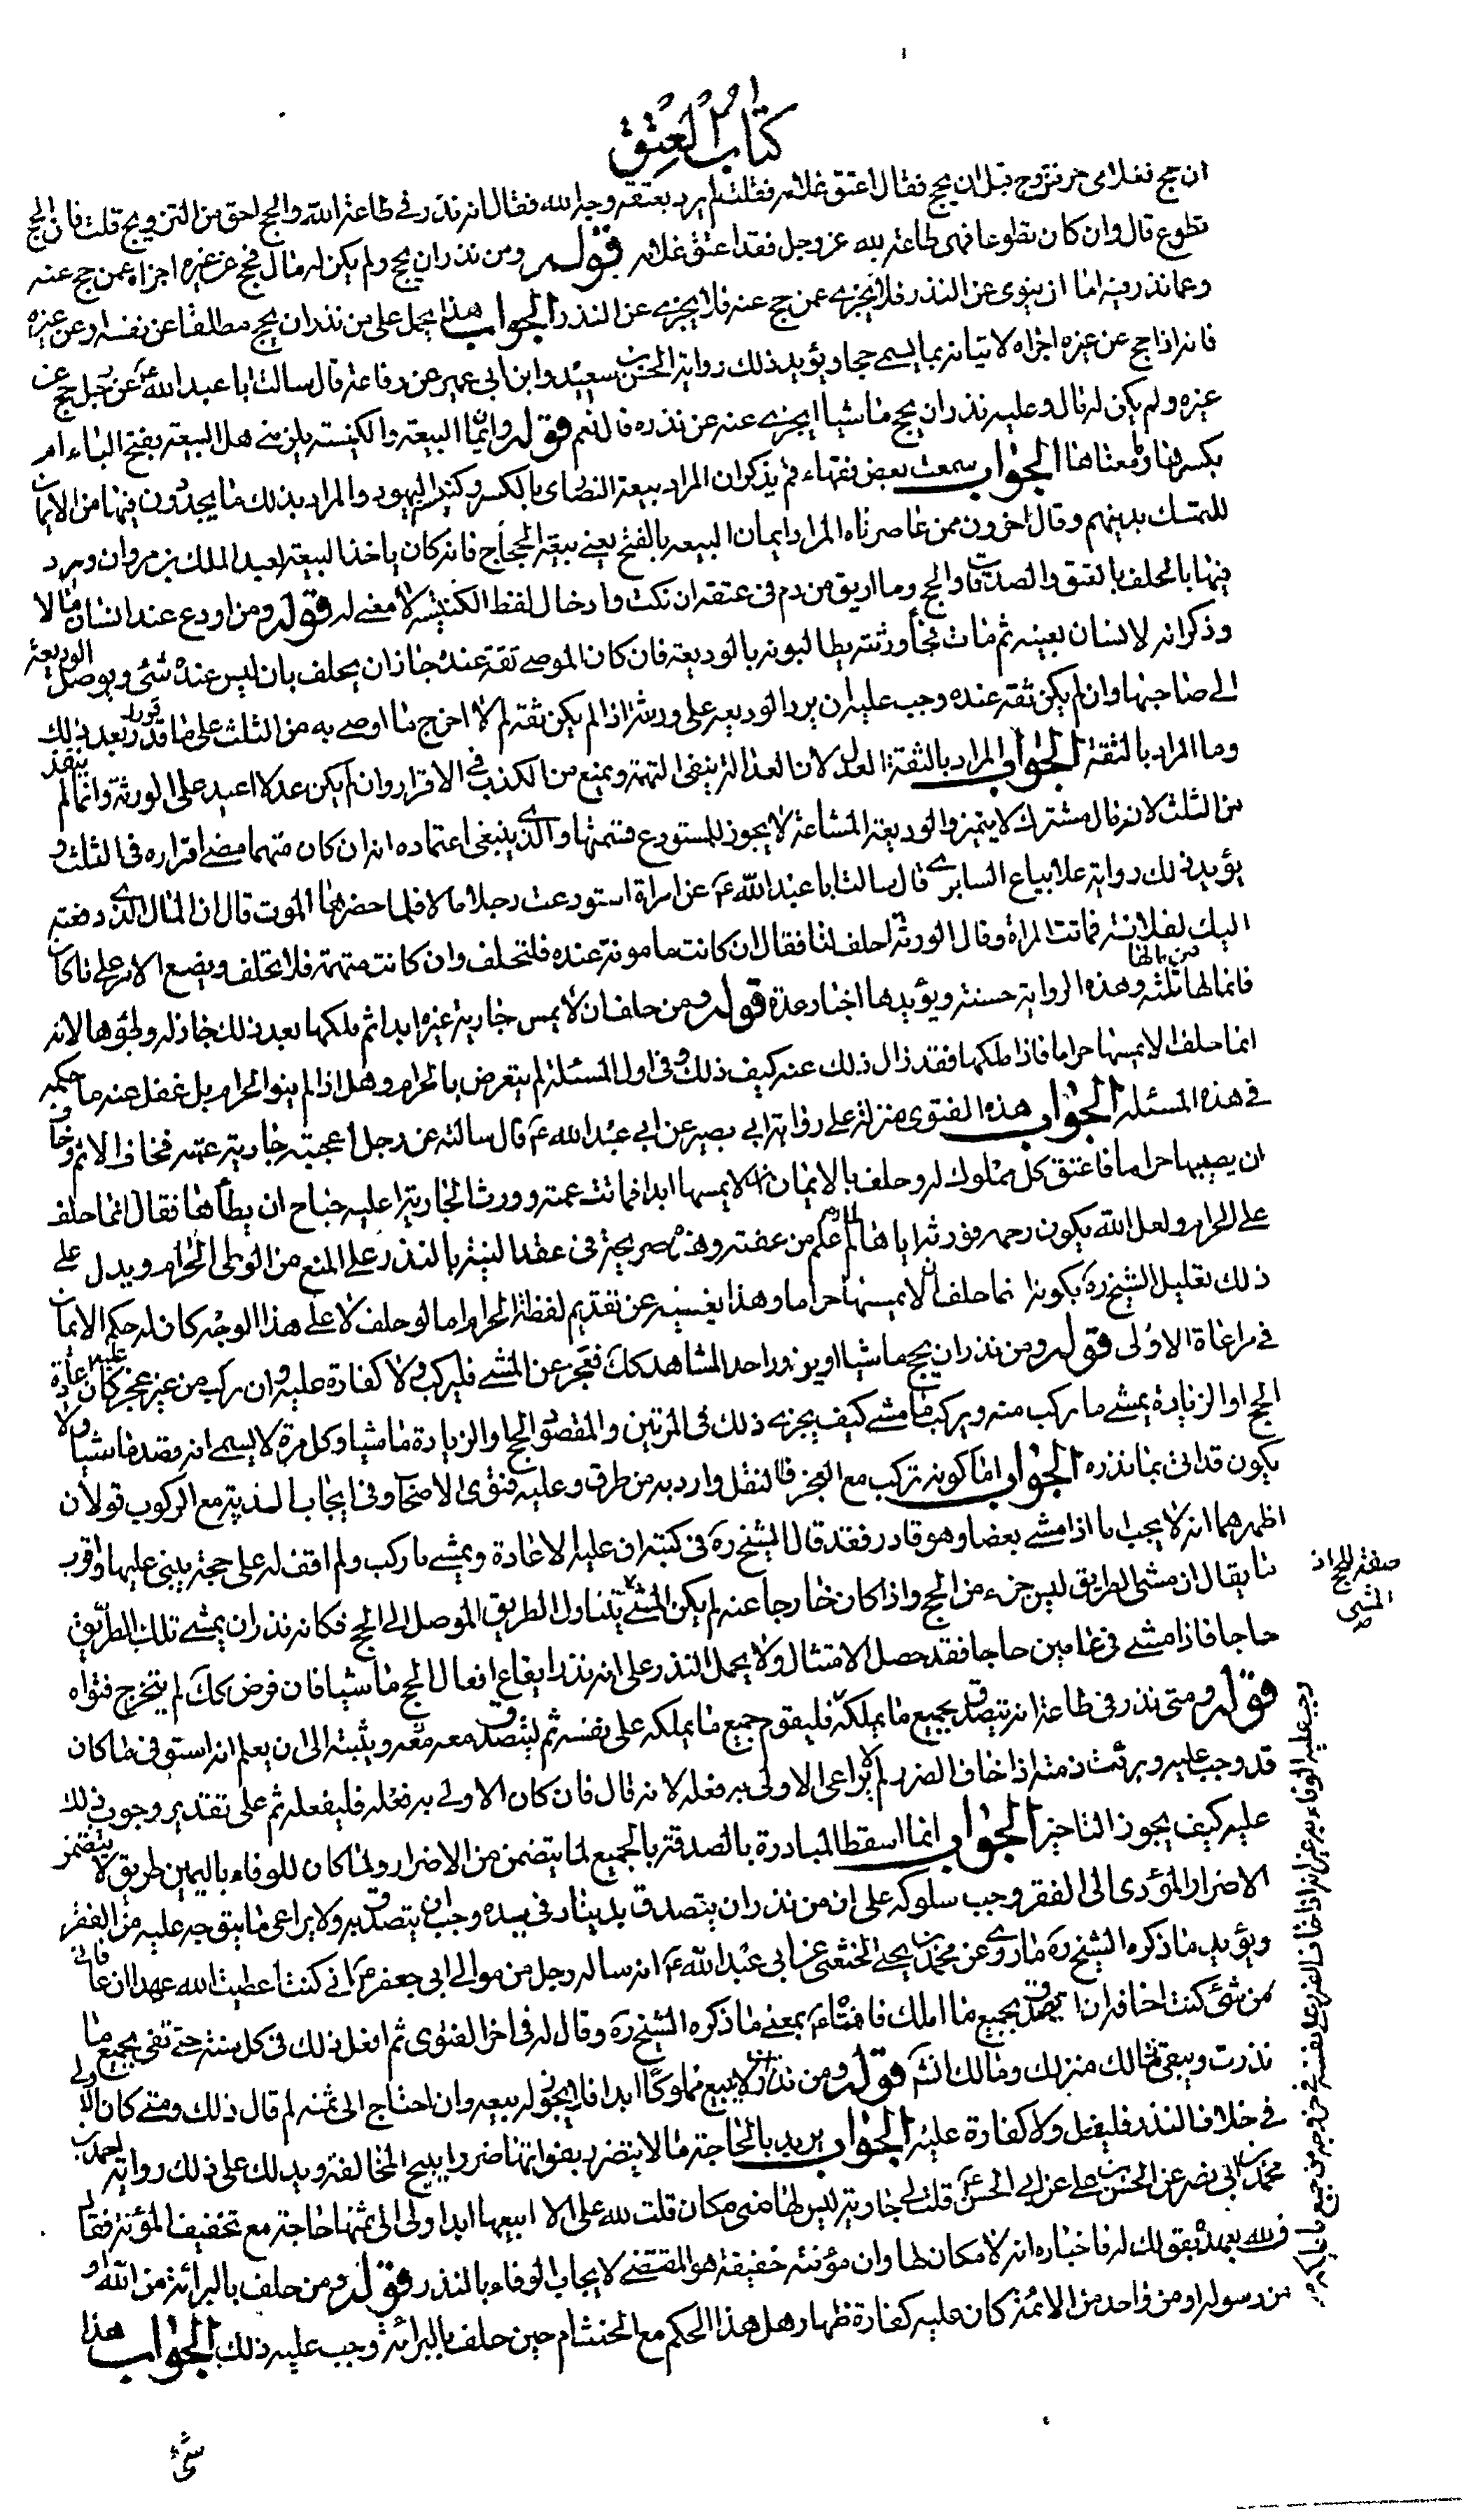 كتاب العتق
ان حج فغلامى حر فتزوج قبل ان يحج فقال اعتق غلامه فقلت لم يرد بعتقه وجه الله فقال انه نذر فى طاعة الله والحج احق من التزويج قلت فان الحج
تطوع قال وان كان تطوعا فهى طاعة لله عز وجل فقد اعتق غلامه قوله ومن نذر ان يحج ولم يكن له مال فحج عن غيره اجزاه عمن حج عنه
وعما نذر فيه اما ان ينوى عن النذر فلا يجزى عمن حج عنه فلا يجزى عن النذر الجواب هذا يحمل على من نذر ان يحج مطلقا عن نفسه او عن غيره
فانه اذا حج عن غيره اجزاه لاتيانه بما يسمى حجا ويؤيد ذلك رواية الحسين بن سعيد وابن ابى عمير عن رفاعة قال سالت ابا عبد الله ع عن رجل حج عن
غيره ولم يكن له مال وعليه نذر ان يحج ماشيا ايجزى عنه عن نذره قال نعم قوله وايمان البيعة والكنيسة يلزمنى هل البيعة بفتح الباء ام
بكسرها وما معناها الجواب سمعت بعض فقهاء قم يذكر ان المراد بيعة النصارى بالكسر وكنيسة اليهود والمراد بذلك ما يجددون فيها من الايمان
للتمسك بدينهم وقال اخرون ممن عاصرناه المراد ايمان البيعه بالفتح يعنى بيعة الحجاج فانه كان ياخذ البيعة لعبد الملك بن مروان ويرد
فيها بالحلف بالعتق والصدقات والحج وما اريق من دم فى عنقه ان نكث وادخال لفظ الكنيسة لا معنى له قوله ومن اودع عند انسان مالا
وذكر انه لانسان بعينه ثم مات فجاء ورثته يطالبونه بالوديعة فان كان الموصى ثقة عنده جاز ان يحلف بان ليس عنده شئ ويوصل الوديعة
الى صاحبها وان لم يكن ثقة عنده وجب عليه ان يرد الوديعه على ورثته اذا لم يكن ثقة لم لا اخرج ما اوصى به من الثلث على ما قدر قوله بعد ذلك
وما المراد بالثقة الجواب المراد بالثقة العدل لان العدالة ينفى التهمة ويمنع من الكذب فى الاقرار وان لم يكن عدلا اعيد على الورثة وانما لم ينفذ
من الثلث لانه مال مشترك لا يتميز والوديعة المشاعة لا يجوز للمستودع قسمتها والذى ينبغى اعتماده انه ان كان متهما مضى اقراره فى الثلث و
يؤيد ذلك رواية علا بياع السابرى قال سالت ابا عبد الله ع عن امراة استودعت رجلا مالا فلما حضرها الموت قال ان المال الذى دفعته
اليك لفلانة فماتت المراة وقال الورثة احلف لنا فقال ان كانت مامونة عنده فلتحلف وان كانت متهمة فلا تحلف ويضع الامر على ما كان
فانما لها من مالها ثلثه وهذه الرواية حسنة ويؤيدها اخبار عدة قوله ومن حلف ان لا يمس جارية غيره ابدا ثم ملكها بعد ذلك جاز له وطؤها لانه
انما حلف الا يمسها حراما فاذا ملكها فقد زال ذلك عنه كيف ذلك وفى اول المسئلة لم يتعرض بالحرام وهل اذا لم ينو الحرام بل غفل عنه ما حكمه
فى هذه المسئلة الجواب هذه الفتوى منزلة على رواية ابى بصير عن ابى عبد الله ع قال سالته عن رجل اعجبته جارية عمته فخاف الاثم وخاف
ان يصيبها حراما فاعتق كل مملوك له وحلف بالايمان ان لا يمسها ابدا فماتت عمته وورث الجارية اعليه جناح ان يطأها فقال انما حلف
على الحرام ولعل الله يكون رحمه فورثه اياها لما علم من عفته وهذه صريحة فى عقد النية بالنذر على المنع من الوطى الحرام ويدل على
ذلك تعليل الشيخ ره بكونه انما حلف ان لا يمسها حراما وهذا يغنيه عن تقديم لفظة الحرام اما لو حلف لا على هذا الوجه كان له حكم الايمان
فى مراعاة الاولى قوله ومن نذر ان يحج ماشيا او يزور احد المشاهد كك فعجز عن المشى فليركب ولا كفارة عليه وان ركب من غير عجز كان عليه اعادة
الحج او الزيادة يمشى ما ركب منه ويركب ما مشى كيف يجزى ذلك فى المرتين والمقصود الحج او الزيارة ماشيا وكل مرة لا يسمى انه قصد ماشيا ولا
يكون قد اتى بما نذره الجواب اما كونه يركب مع العجز فالنقل وارد به من طرق وعليه فتوى الاصحاب وفى ايجاب البدنة مع الركوب قولان
اظهرهما انه لا يجب اما اذا مشى بعضا وهو قادر فقد قال الشيخ ره فى كتبه ان عليه الاعادة ويمشى ما ركب ولم اقف له على حجة يبنى عليها واقرب
ما يقال ان مشى الطريق ليس جزء من الحج واذا كان خارجا عنه لم يكن المشى يتناول الطريق الموصل الى الحج فكانه نذر ان يمشى تلك الطريق
حاجا فاذا مشى فى عامين حاجا فقد حصل الامتثال ولا يحمل النذر على انه نذر ايقاع افعال الحج ماشيا فان فرض كك لم يتخرج فتواه
قوله ومتى نذر فى طاعة انه يتصدق بجميع ما يملكه فليقوم جميع ما يملكه على نفسه ثم ليتصدق معه معه ويثبته الى ان يعلم انه استوفى ما كان
قد وجب عليه وبرئت ذمته اذا خاف الضرر لم لا يراعى الاولى به فعله لانه قال فان كان الاولى به فعله فليفعله ثم على تقدير وجوب ذلك
عليه كيف يجوز التاخير الجواب انما اسقط المبادرة بالصدقة بالجميع لما يتضمن من الاضرار ولما كان للوفاء باليمين طريق لا يتضمن
الاضرار المؤدى الى الفقر وجب سلوكه على ان من نذر ان يتصدق بدينار فى يده وجب ان يتصدق به ولا يراعى ما يتوجه عليه من الفقر
ويؤيد ما ذكره الشيخ ره ما روى عن محمد بن يحيى الخثعمى عن ابى عبد الله ع انه ساله رجل من موالى ابى جعفر ع انى كنت اعطيت الله عهدا ان عافانى
من شئ كنت اخافه ان اتصدق بجميع ما املك فافتاه ع بمعنى ما ذكره الشيخ ره وقال له فى اخر الفتوى ثم افعل ذلك فى كل سنة حتى تفى بجميع ما
نذرت ويبقى مالك منزلك ومالك انش قوله ومن نذر ان لا يبيع مملوكا ابدا فلا يجوز له بيعه وان احتاج الى ثمنه لم قال ذلك ومتى كان الاولى
فى خلاف النذر فليفعل ولا كفارة عليه الجواب يريد بالحاجة ما لا يتضرر بفواتها ضررا يبيح المخالفة ويدل على ذلك رواية احمد بن
محمد بن ابى نصر عن الحسن بن على عن ابى الحسن ع قلت لى جارية ليس لها منى مكان قلت لله على الا ابيعها ابدا ولى الى ثمنها حاجة مع تخفيف المؤنة فقال
ف لله بعهدك بقولك له فاخباره انه لا مكان لها وان مؤنته خفيفة هو المقتضى لايجاب الوفاء بالنذر قوله ومن حلف بالبرائة من الله او
من رسوله او من واحد من الائمة كان عليه كفارة ظهار هل هذا الحكم مع الحنث ام حين حلف بالبرائة وجب عليه ذلك الجواب هذا
صفة للحج اذ
المشى
شئ